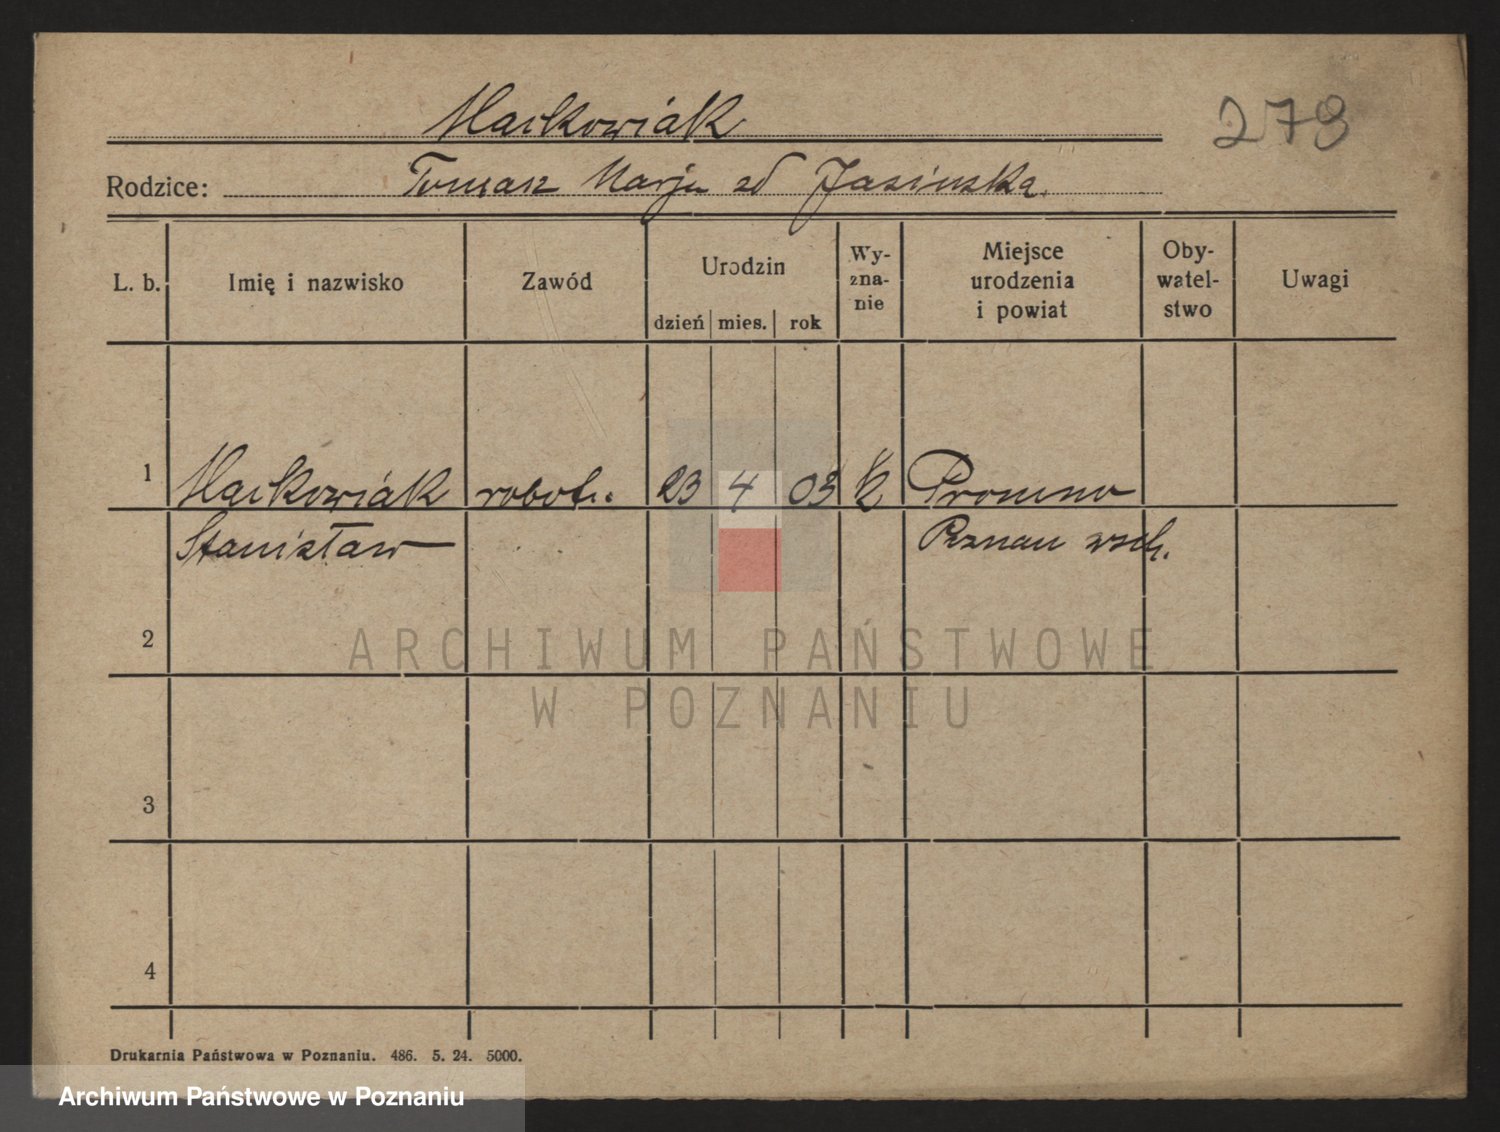 Maćkowiak
278
Rodzice: Tomasz Marja zd Jasińska.
L. b. Imię i nazwisko Zawód Urodzin Wy-zna-nie Miejsce urodzenia i powiat Oby-watel-stwo Uwagi
dzień mies. rok
1 Maćkowiak robotn. 23 4 03 k Promno
Stanisław Poznan wsch.
2
ARCHIWUM PAŃSTWOWE
W POZNANIU
3
4
Drukarnia Państwowa w Poznaniu. 486. 5. 24. 5000.
Archiwum Państwowe w Poznaniu